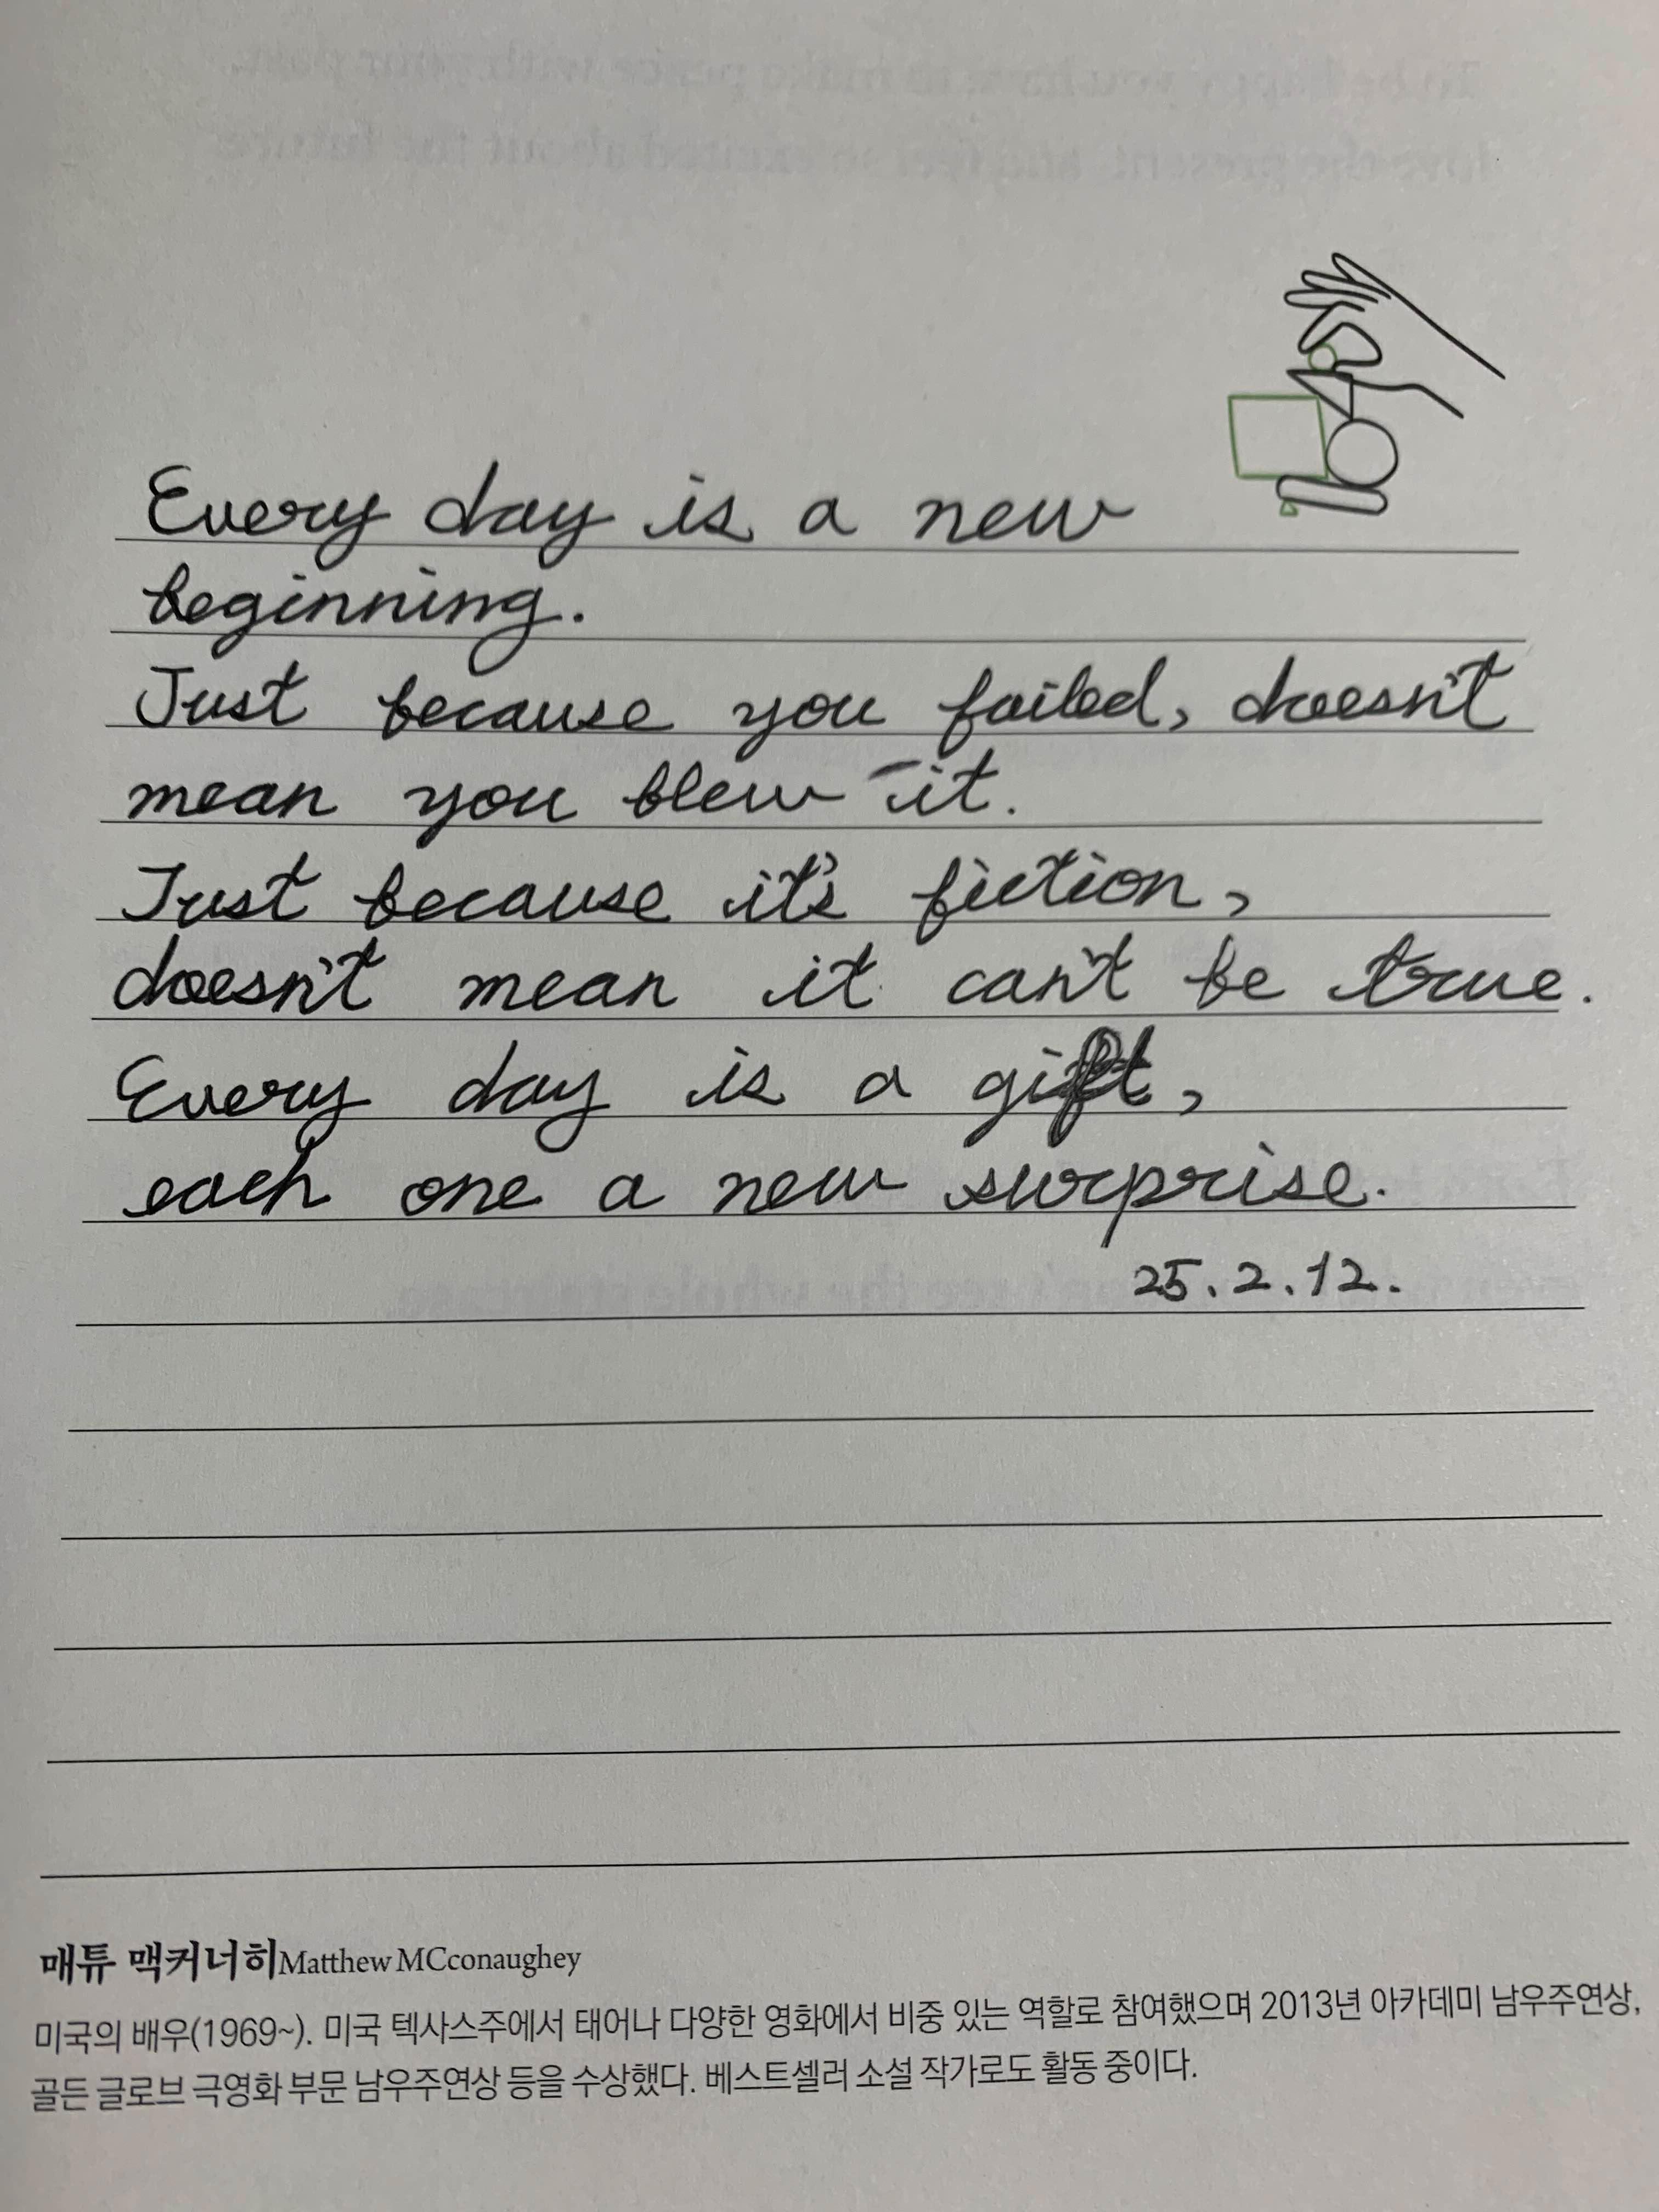 Every day is a new
beginning.
Just because you failed, doesn't
mean you blew it.
Just because it's fiction,
doesn't mean it can't be true.
Every day is a gift,
each one a new surprise.
25.2.12.
매튜 맥커너히Matthew MCconaughey
미국의 배우(1969~). 미국 텍사스주에서 태어나 다양한 영화에서 비중 있는 역할로 참여했으며 2013년 아카데미 남우주연상,
골든 글로브 극영화 부문 남우주연상 등을 수상했다. 베스트셀러 소설 작가로도 활동 중이다.